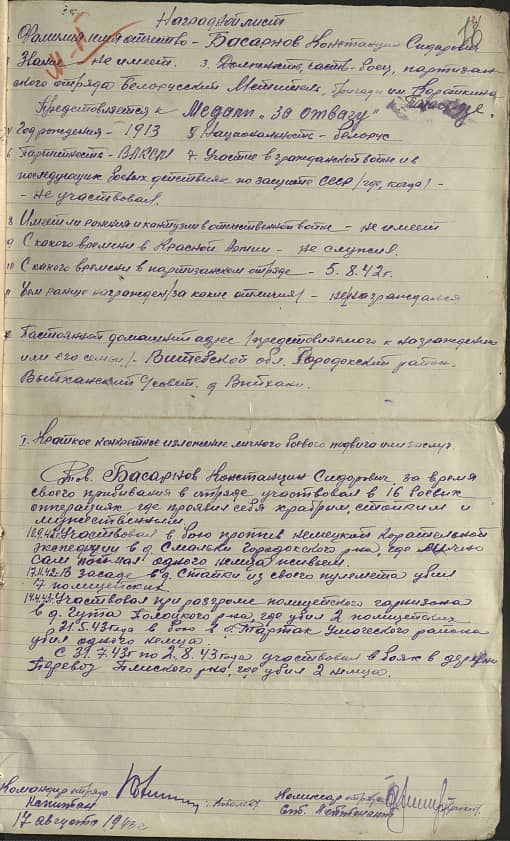 Наградной лист
1 Фамилия имя отчество - Басарнов Константин Сидорович
2 Звание - Не имеет. 3. Должность, часть боец, партизан-
ского отряда Белорусский мститель, бригады им. Короткина
Представляется к Медали "За отвагу"
Год рождения - 1913 5 Национальность - белорус
6 Партийность - ВЛКСМ 7. Участие в гражданской войне и в
последующих боевых действиях по защите СССР /где, когда/ -
- не участвовал.
8 Имеет ли ранения и контузии в отечественной войне - не имеет
9 С какого времени в Красной Армии - не служил.
10 С какого времени в партизанском отряде - 5.8.42г.
11 Чем ранее награжден /за какие отличия/ - не награждался
12 Постоянной домашний адрес /представляемого к награждению
или его семьи/ - Витебской обл. Городокский район.
Вытханский с/совет. д. Вытхани.
I. Краткое конкретное изложение личного боевого подвига или заслуг.
Тов. Басарнов Константин Сидорович за время
своего прибивания в отряде участвовал в 16 боевых
операциях, где проявил себя храбрым, стойким и
мужественным
Участвовал в бою против немецкой карательной
экспедиции в д. Смальки Городокского р-на, где лично
сам поймал одного немца живьем.
17.11.42г В засаде в д. Статки из своего пулемета убил
7 полицейских
14.4.43г Участвовал при разгроме полицейского гарнизона
в д. Гута Полоцкого р-на, где убил 2 полицейских
21.5.43 года в бою в д. Тартак Ушачского района
убил одного немца.
С 31.7.43г по 2.8.43 года участвовал в боях в деревни
Перевоз р-на, где убил 2 немца.
Командир отряда
Капитан
17 августа 1943г
Комиссар отряда
Ст. Лейтенант